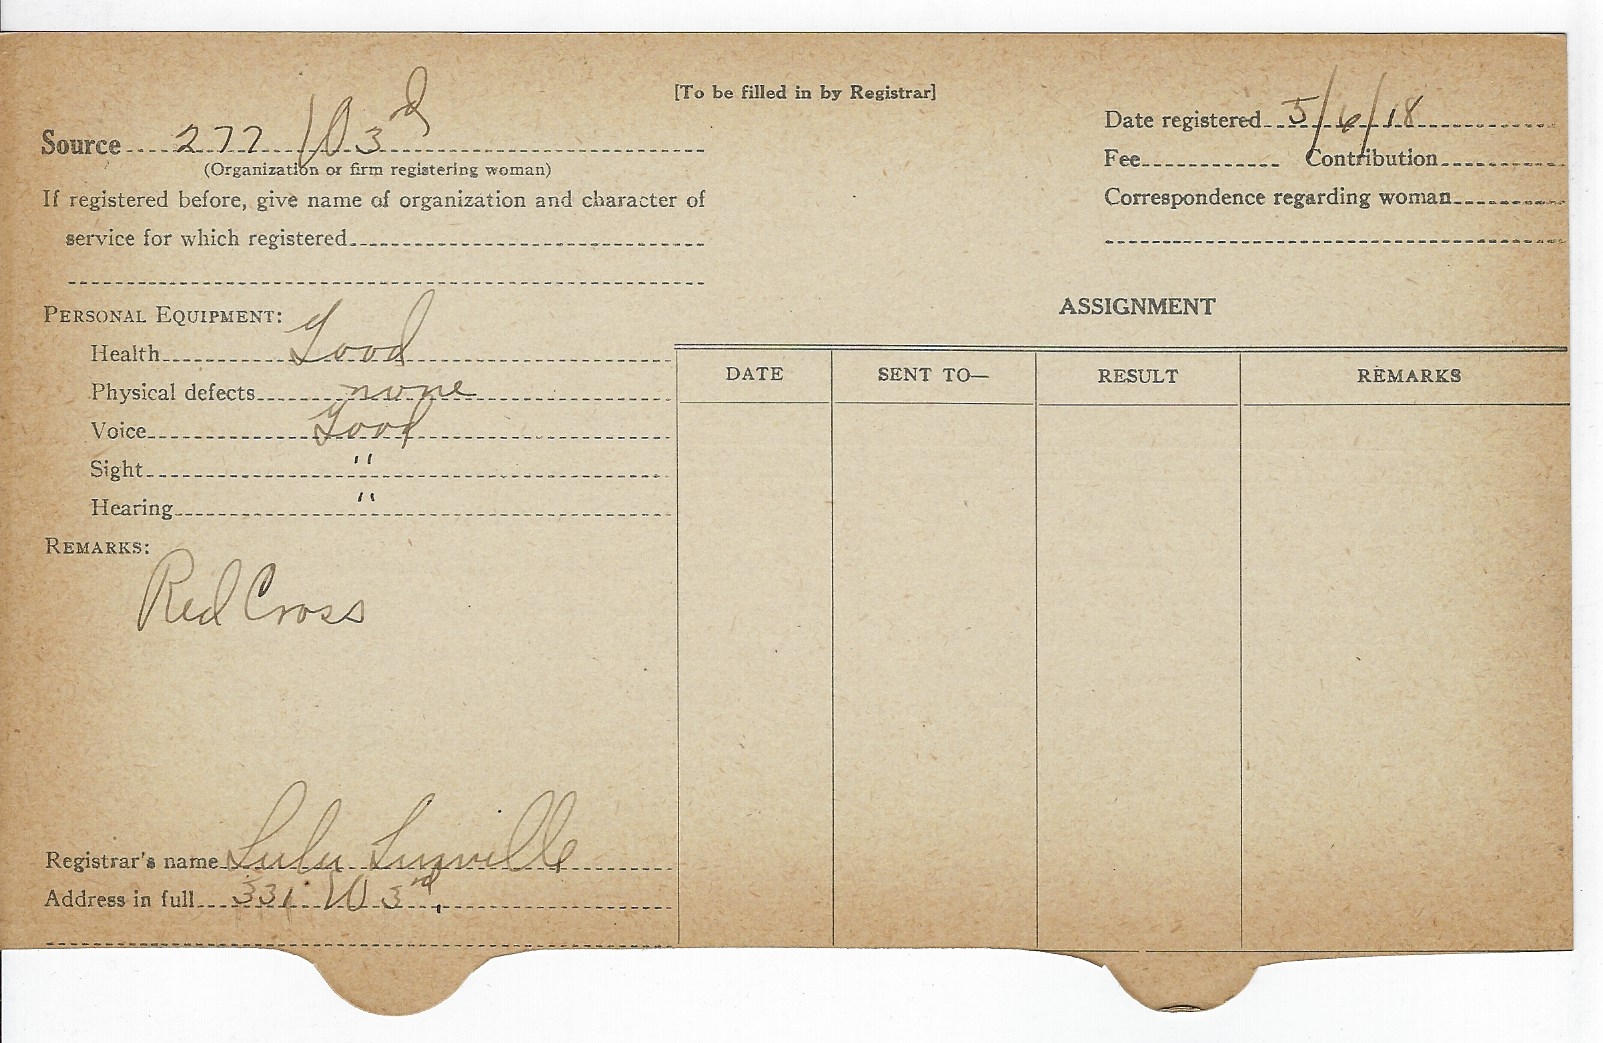 [To be filled in by Registrar]
Source 277 W 3rd
(Organization or firm registering woman)
If registered before, give name of organization and character of
service for which registered
Date registered 5/6/18
Fee Contribution
Correspondence regarding woman
PERSONAL EQUIPMENT:
Health Good
Physical defects none
Voice Good
Sight "
Hearing "
REMARKS:
Red Cross
Registrar's name Lulu
Address in full 331 W 3rd
ASSIGNMENT
DATE SENT TO— RESULT REMARKS